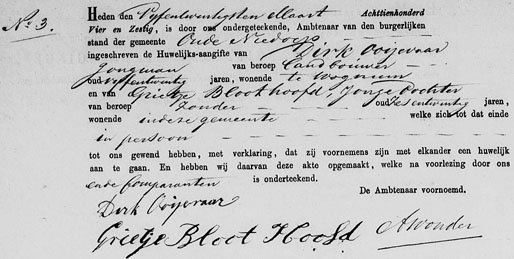 No 3.
Heden den Vyfentwintigsten Maart Achttienhonderd
Vier en Zestig, is door ons ondergeteekende, Ambtenaar van den burgerlijken
stand der gemeente Oude Niedorp
ingeschreven de Huwelijks-aangifte van Dirk Ooijevaar
Jongman van beroep Landbouwer
oud vyfentwintig jaren, wonende te Wognum
en van Grietje Bloothoofd, Jonge dochter
van beroep Zonder oud Zesentwintig jaren,
wonende in deze gemeente welke zich tot dat einde
in persoon
tot ons gewend hebben, met verklaring, dat zij voornemens zijn met elkander een huwelijk
aan te gaan. En hebben wij daarvan deze akte opgemaakt, welke na voorlezing door ons
en de Comparanten is onderteekend.
De Ambtenaar voornoemd,
Dirk Ooijevaar
Grietje Bloot Hoofd. A Wonder